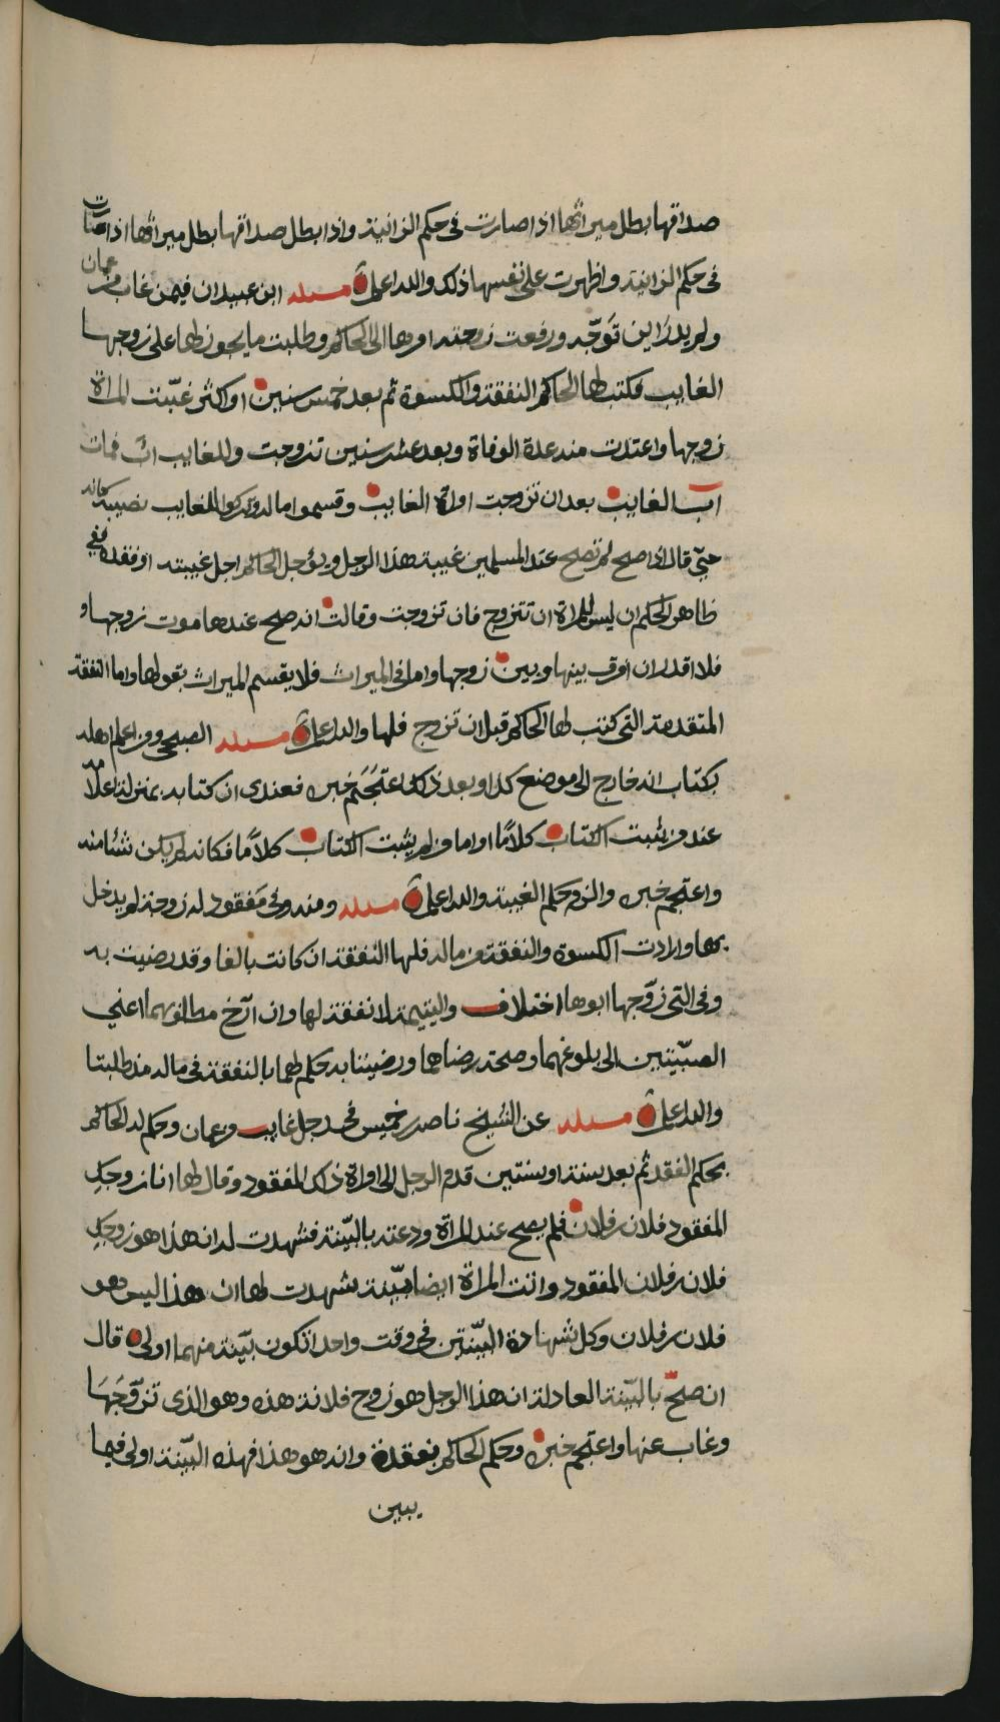 صداقها بطل ميراثها اذا صارت في حكم الزانية واذا بطل صداقها بطل ميراثها اذا صارت
في حكم الزانية واظهرت على نفسها ذلك والله اعلم مسئلة ابن عبيدان فيمن غاب من عمان
ولم يدر اين توجّه ورفعت زوجته امرها الى الحاكم وطلبت ما يجوز لها على زوجها
الغايب فكتب لها الحاكم النفقة والكسوة ثم بعد خمس سنين او اكثر غيّبت المراة
زوجها واعتدت منه عدة الوفاة وبعد عشر سنين تزوجت وللغايب اب فمات
اب الغايب بعد ان تزوجت امراة الغايب وقسموا ماله وتركوا للغايب نصيبه كانه
حيّ قال اذا صح لم تصح عند المسلمين غيبة هذا الرجل ويؤجل الحاكم اجل غيبته او فقده ففي
ظاهر الحكم ان ليس للمراة ان تتزوج فان تزوجت وقالت انه صح عندها موت زوجها و
فلا اقدر ان افرق بينها وبين زوجها واما في الميراث فلا يقسم الميراث بقولها واما النفقة
المتقدمة التي كتب لها الحاكم قبل ان تزوج فلها والله اعلم مسئلة الصبحي ومن اعلم اهله
بكتاب انه خارج الى موضع كذا وبعد ذلك اعتجم خبره فعندي ان كتابه بمنزلة اعلامه
عند من يثبت الكتاب كلامًا واما من لم يثبت الكتاب كلامًا فكانه لم يكن شئا منه
واعتجم خبره والزم حكم الغيبة والله اعلم مسئلة ومنه وفي مفقود له زوجة لم يدخل
بها وارادت الكسوة والنفقة من ماله فلها النفقة ان كانت بالغا وقد رضيت به
وفي التي زوّجها ابوها اختلاف واليتيمة لا نفقة لها وان ارّخ مطالبهما اعني
الصبّيتين الى بلوغهما وصحة رضاهما ورضيتا به حكم لهما بالنفقة في ماله منذ طلبتا
والله اعلم مسئلة عن الشيخ ناصر بن خميس في رجل غايب من عمان وحكم له الحاكم
بحكم الفقد ثم بعد سنة او سنتين قدم الرجل الى امراة ذلك المفقود وقال لها انا زوجكِ
المفقود فلان بن فلان فلم يصح عند المراة ودعته بالبيّنة فشهدت له ان هذا هو زوجكِ
فلان بن فلان المفقود واتت المراة ايضا ببيّنة شهدت لها ان هذا ليس هو
فلان بن فلان وكل شهادة البيّنتين في وقت واحد اتكون بيّنة منهما اولى قال
ان صحّ بالبيّنة العادلة ان هذا الرجل هو زوج فلانة هذه وهو الذي تزوّجَهَا
وغاب عنها واعتجم خبره وحكم الحاكم بفقده وانه هو هذا فهذه البيّنة اولى فيما
يبين